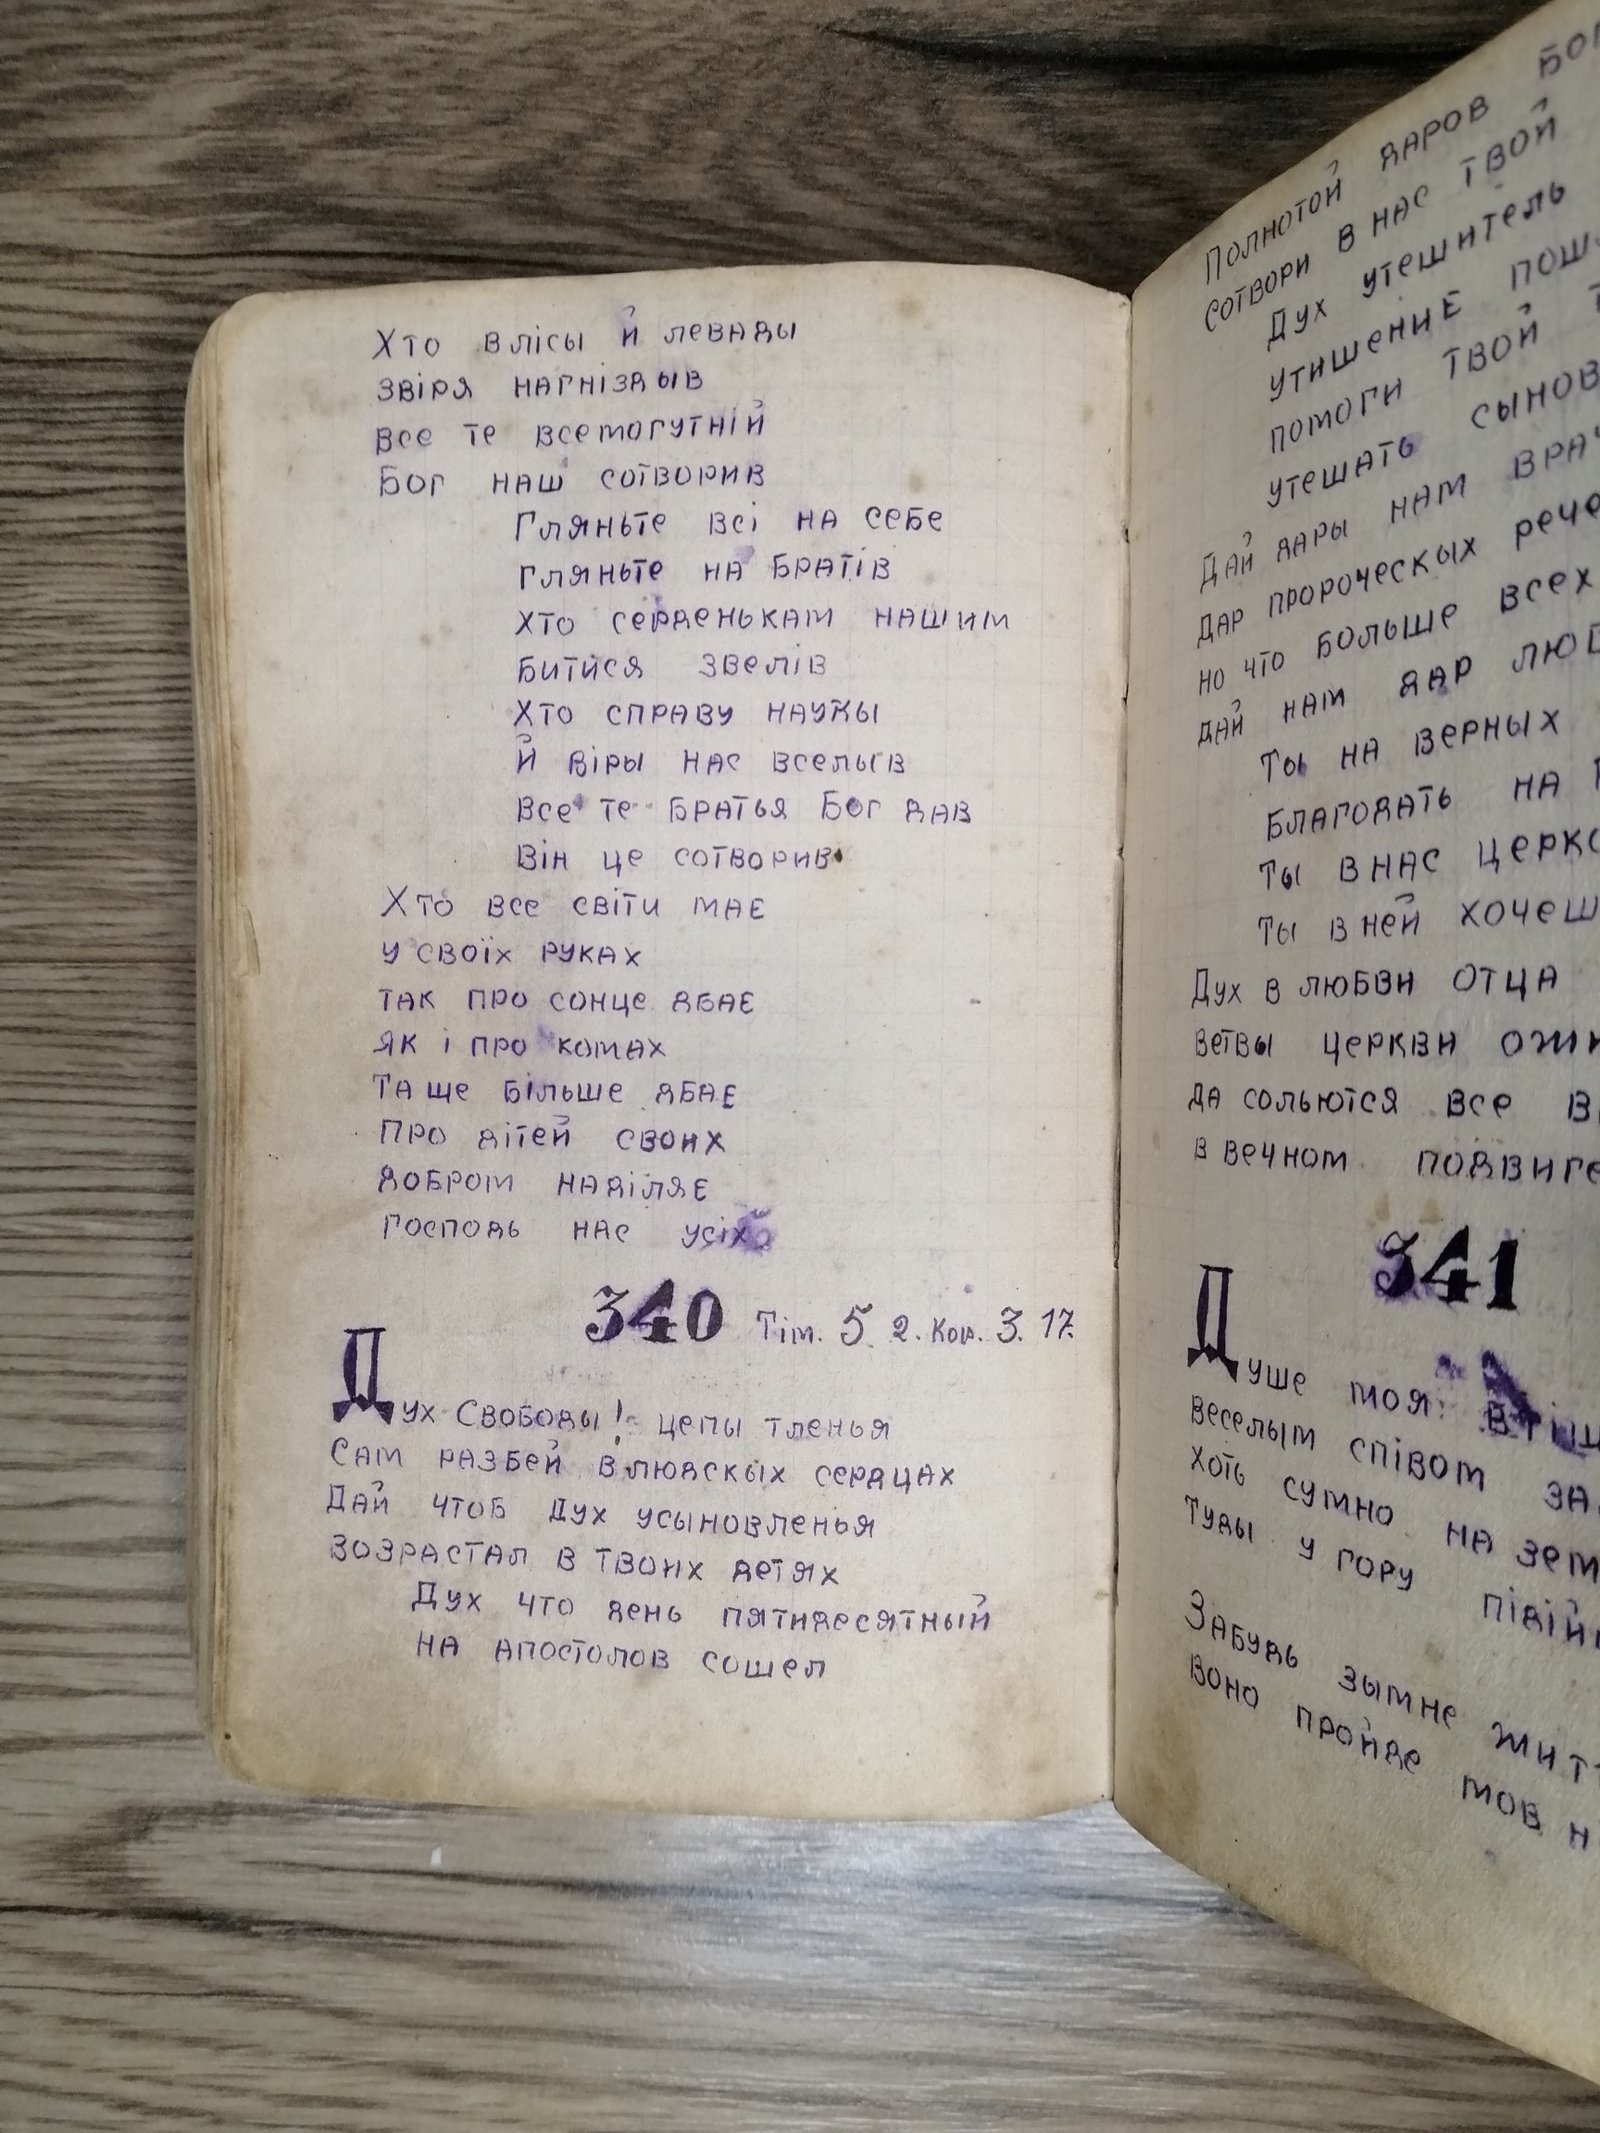 Хто в лісы й левады
звіря нагніздыв
все те всемогутній
Бог наш сотворив
Гляньте всі на себе
гляньте на братів
хто серденькам нашим
битися звелів
Хто справу наукы
й віры нас вселыв
Все те братья Бог дав
Він це сотворив
Хто все світи має
у своїх руках
так про сонце дбає
як і про комах
Та ще більше дбає
Про дітей своих
добром наділяє
господь нас усіх
340 Тім. 5 2. Кор. 3. 17.
Дух Свободы! цепы тленья
Сам разбей в людскых сердцах
Дай чтоб Дух усыновленья
возрастал в твоих детях
Дух что день пятидесятный
на апостолов сошел
Полнотой даров
сотвори в нас твой
Дух утешитель
утишение
помоги твой
утешать
Дай дары нам
дар пророческых
но что больше всех
дай нам дар
Ты на верных
благодать на
ты в нас
ты в ней хочеш
Дух в любви отца
ветвы церкви
да сольются все
в вечном
341
Душе моя
веселым співом
хоть сумно на
туды у гору
Забудь зымне
воно пройде мов